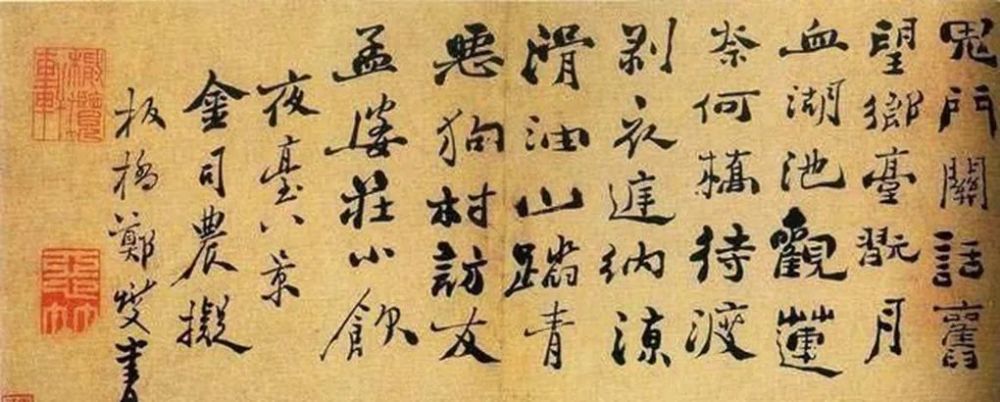 鬼門關話舊
望鄉臺翫月
血湖池觀蓮
奈何橋待渡
剥衣庭納涼
滑油山踏青
惡狗村訪友
孟婆莊小飲
夜臺八景
金司農擬
板橋鄭燮書